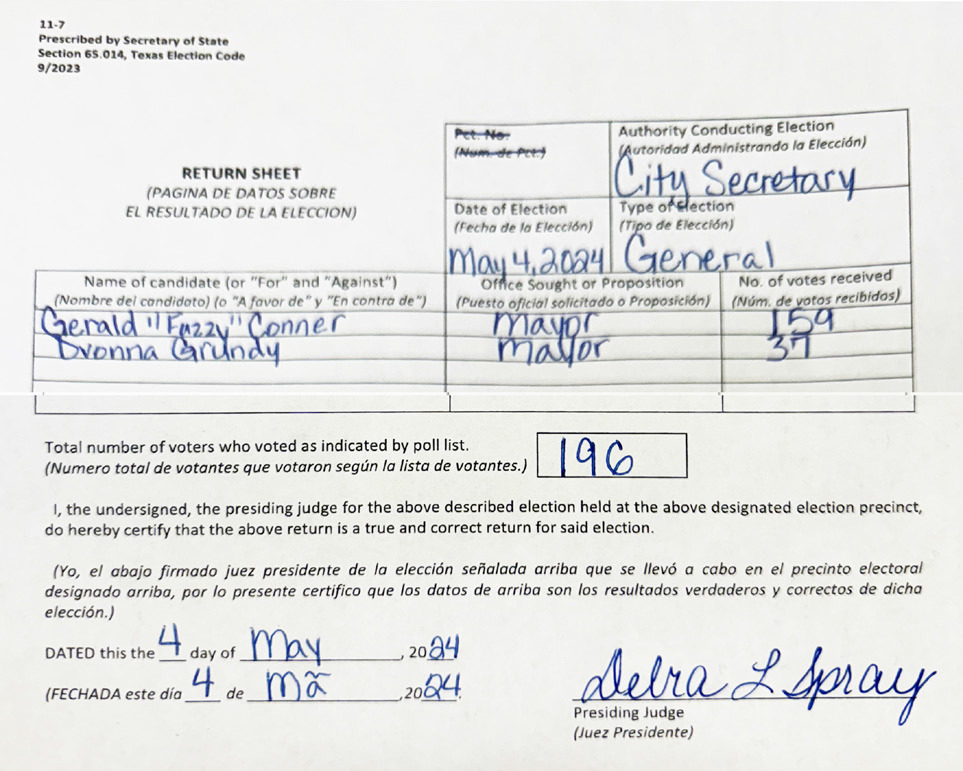 11-7
Prescribed by Secretary of State
Section 65.014, Texas Election Code
9/2023
RETURN SHEET
(PAGINA DE DATOS SOBRE
EL RESULTADO DE LA ELECCION)
Pct. No.
(Num. de Pct.)
Authority Conducting Election
(Autoridad Administrando la Elección)
City Secretary
Date of Election
(Fecha de la Elección)
May 4, 2024
Type of Election
(Tipo de Elección)
General
Name of candidate (or "For" and "Against")
(Nombre del candidato) (o "A favor de" y "En contra de")
Office Sought or Proposition
(Puesto oficial solicitado o Proposición)
No. of votes received
(Núm. de votos recibidos)
Gerald "Fuzzy" Conner Mayor 159
Dvonna Grundy Mayor 37
Total number of voters who voted as indicated by poll list.
(Numero total de votantes que votaron según la lista de votantes.)
196
I, the undersigned, the presiding judge for the above described election held at the above designated election precinct,
do hereby certify that the above return is a true and correct return for said election.
(Yo, el abajo firmado juez presidente de la elección señalada arriba que se llevó a cabo en el precinto electoral
designado arriba, por lo presente certifico que los datos de arriba son los resultados verdaderos y correctos de dicha
elección.)
DATED this the 4 day of May, 2024
(FECHADA este día 4 de mã, 2024.
Debra L Spray
Presiding Judge
(Juez Presidente)